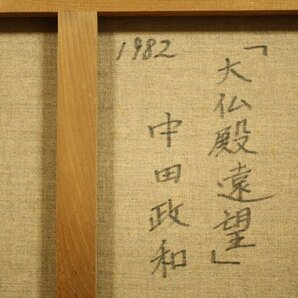 「大仏殿遠望」
1982
中田政和